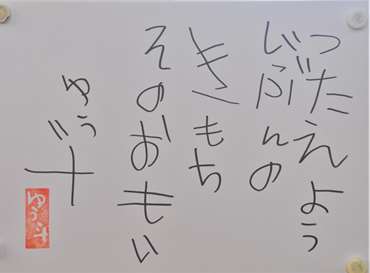 つたえよう
じぶんの
きもち
そのおもい
ゆう
ゆう